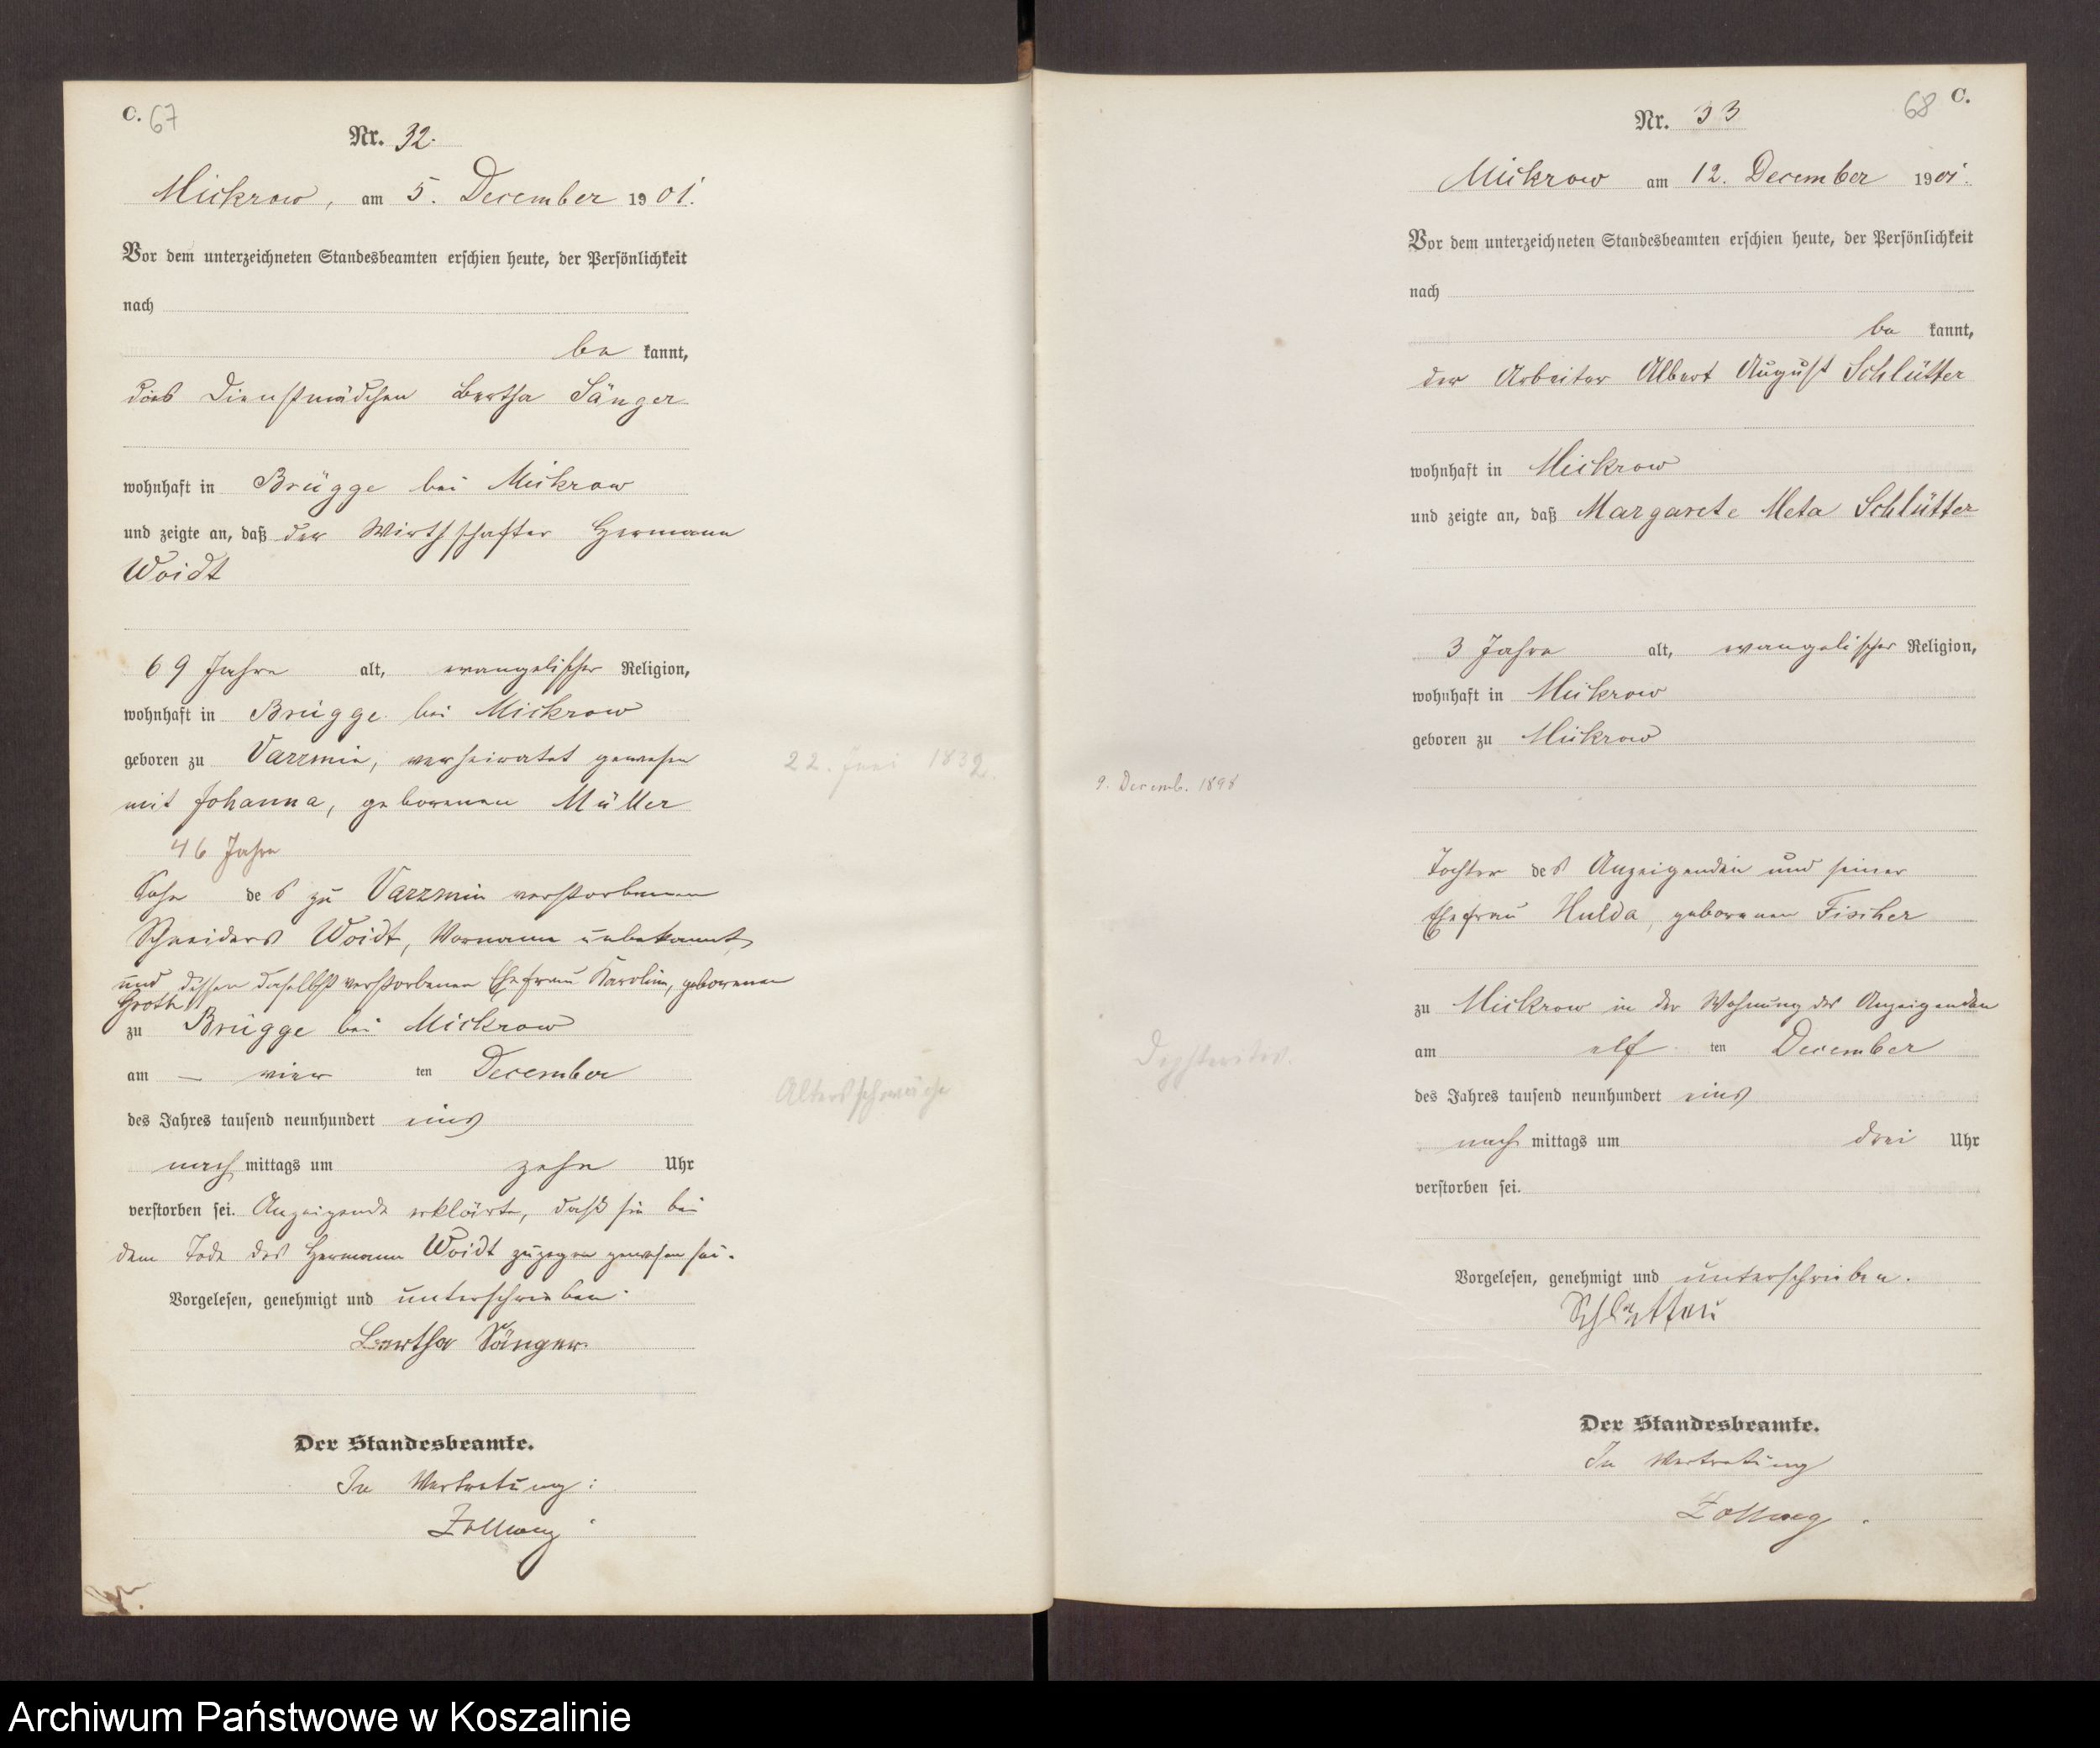 C. 67
Nr. 32.
Mickrow, am 5. December 1901.
Vor dem unterzeichneten Standesbeamten erschien heute, der Persönlichkeit
nach
be kannt,
das Dienstmädchen Bertha Sänger
wohnhaft in Brügge bei Mickrow
und zeigte an, daß der Wirthschafter Hermann
Woidt
69 Jahre alt, evangelischer Religion,
wohnhaft in Brügge bei Mickrow
geboren zu Varzmin, verheiratet gewesen
22. Juni 1832.
mit Johanna, geborenen Müller
46 Jahre
Sohn des zu Varzmin verstorbenen
Schneiders Woidt, Vorname unbekannt,
und dessen daselbst verstorbenen Ehefrau Karoline, geborenen
Groth
zu Brügge bei Mickrow
am – vier ten December
Altersschwäche
des Jahres tausend neunhundert eins
nach mittags um zehn Uhr
verstorben sei. Anzeigende erklärte, daß sie bei
dem Tode des Hermann Woidt zugegen gewesen sei.
Vorgelesen, genehmigt und unterschrieben.
Bertha Sänger.
Der Standesbeamte.
In Vertretung:
68 C.
Nr. 33
Mickrow am 12. December 1901.
Vor dem unterzeichneten Standesbeamten erschien heute, der Persönlichkeit
nach
be kannt,
der Arbeiter Albert August Schlütter
wohnhaft in Mickrow
und zeigte an, daß Margarete Meta Schlütter
3 Jahre alt, evangelischer Religion,
wohnhaft in Mickrow
geboren zu Mickrow
9. Decemb. 1898
Tochter des Anzeigenden und seiner
Ehefrau Hulda, geborenen Fischer
zu Mickrow in der Wohnung des Anzeigenden
am elf ten December
des Jahres tausend neunhundert eins
nach mittags um drei Uhr
verstorben sei.
Vorgelesen, genehmigt und unterschrieben.
Der Standesbeamte.
In Vertretung
Archiwum Państwowe w Koszalinie